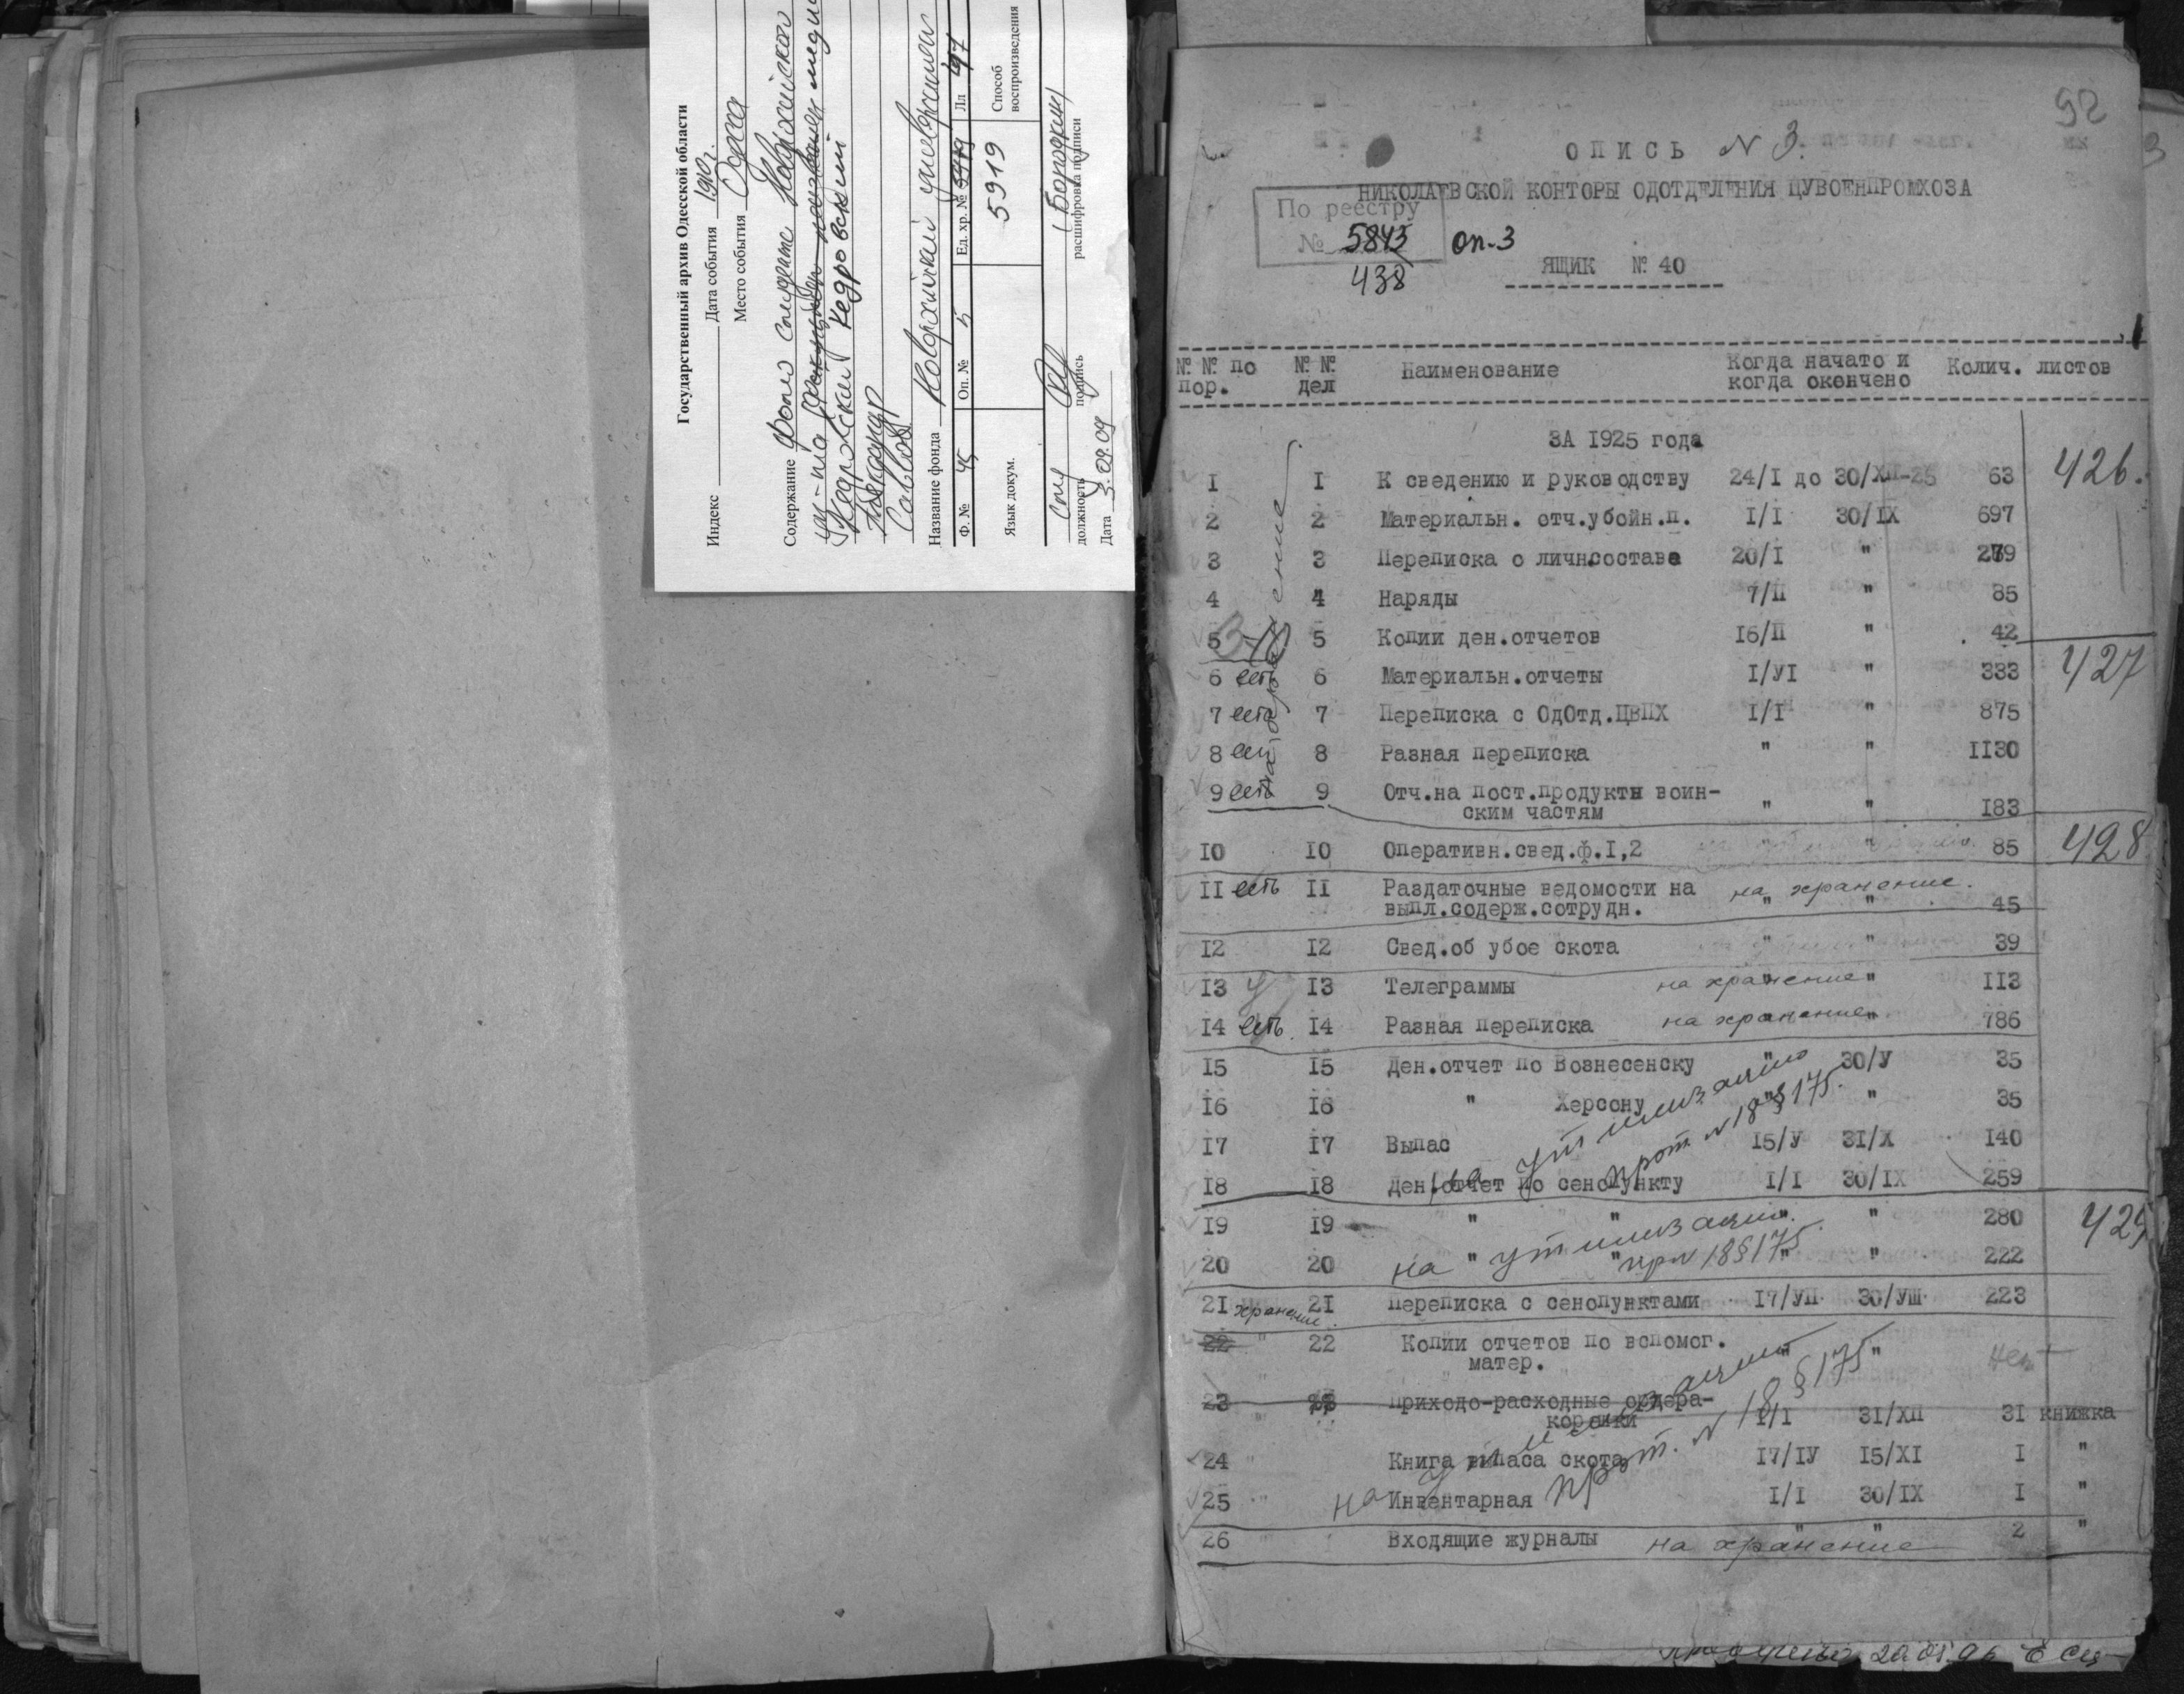 Государственный архив Одесской области
Индекс Дата события 1910г.
Место события Одесса
Содержание Фото студента Новороссийского
ун-та
Кедровский Кедровский
Александр
Саввов
Название фонда Новороссийский университет
Ф. № 45 Оп. № 5 Ед. хр. № Лл
5919
Язык докум. Способ
воспроизведения
должность подпись (Бородкин)
расшифровка подписи
Дата 3.09.09
92
ОПИСЬ № 3.
НИКОЛАЕВСКОЙ КОНТОРЫ ОДОТДЕЛЕНИЯ ЦУВОЕНПРОМХОЗА
По реестру
№ 5845 оп-3
438
ЯЩИК № 40
№ № по № № Наименование Когда начато и Колич. листов
пор. дел когда окончено
ЗА 1925 года
I I К сведению и руководству 24/I до 30/XII-25 63 426.
2 2 Материальн. отч.убойн.п. I/I 30/IX 697
3 3 Переписка о личн.составе 20/I " 279
4 4 Наряды 7/II " 85
5 5 Копии ден.отчетов I6/II " 42
6 есть 6 Материальн.отчеты I/УI " 333 427
7 есть 7 Переписка с ОдОтд.ЦВПХ I/I " 875
8 есть 8 Разная переписка " " II30
9 есть 9 Отч.на пост.продукты воин-
ским частям " " I83
на хранение
I0 I0 Оперативн.свед.ф.I,2 " " 85 428
II есть II Раздаточные ведомости на на хранение.
выпл.содерж.сотрудн. " " 45
I2 I2 Свед.об убое скота " " 39
I3 I3 Телеграммы на хранение " II3
I4 есть I4 Разная переписка на хранение " 786
I5 I5 Ден.отчет по Вознесенску " 30/У 35
I6 I6 " Херсону " " 35
I7 I7 Выпас I5/У 3I/X I40
I8 I8 Ден.отчет по сенопункту I/I 30/IX 259
на утилизацию
прот. №18 §175.
I9 I9 " " " " 280 429
20 20 " " " " 222
на утилизацию.
пр №18§175.
2I хранение. 2I Переписка с сенопунктами I7/УП 30/УШ 223
22 22 Копии отчетов по вспомог.
матер. " " нет
23 23 Приходо-расходные ордера-
корешки I/I 3I/XII 3I книжка
24 Книга выпаса скота I7/IУ I5/XI I "
25 Инвентарная I/I 30/IX I "
на утилизацию
прот. №18 §175
26 Входящие журналы на хранение " " 2 "